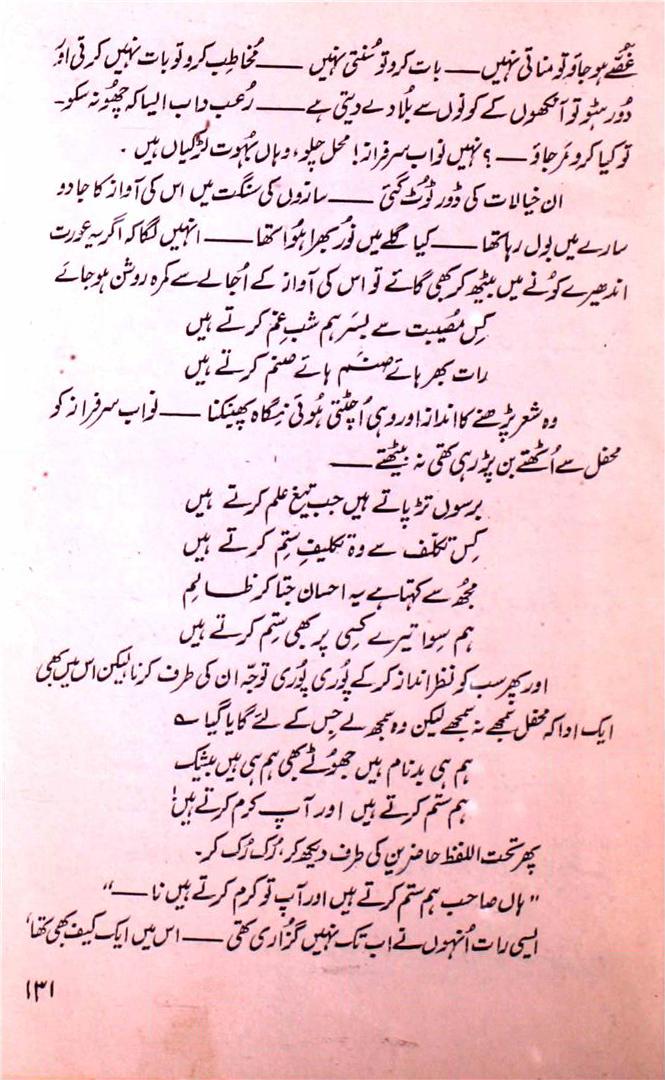 غصّے ہو جاؤ تو مناتی نہیں —— بات کرو تو سُنتی نہیں —— مُخاطِب کرو تو بات نہیں کرتی اور
دُور ہٹو تو آنکھوں کے کونوں سے بُلاوے دیتی ہے —— رُعب داب ایسا کہ چھُو نہ سکو۔
تو کیا کرو مَر جاؤ —— ؟ نہیں نواب سرفراز! محل چلو، وہاں بہُوت لڑکیاں ہیں ۔
ان خیالات کی ڈور ٹوٹ گئی —— سازوں کی سنگت میں اس کی آواز کا جادو
سارے میں بول رہا تھا —— کیا گلے میں نُور بھرا ہُوا تھا —— انہیں لگا کہ اگر یہ عورت
اندھیرے کونے میں بیٹھ کر بھی گائے تو اس کی آواز کے اُجالے سے کمرہ روشن ہو جائے
کِس مُصیبت سے بسَر ہم شبِ غم کرتے ہیں
رات بھر ہائے صنَم ہائے صنم کرتے ہیں
وہ شعر پڑھنے کا انداز اور وہی اُچٹتی ہُوئی نِگاہ پھینکنا —— نواب سرفراز کو
محفل سے اُٹھتے بن پڑ رہی تھی نہ بیٹھتے ——
برسوں تڑپاتے ہیں جب تیغ علم کرتے ہیں
کِس تکلّف سے وہ تکلیفِ ستِم کرتے ہیں
مجھُ سے کہتا ہے یہ احسان جتا کر ظالِم
ہم سِوا تیرے کِسی پر بھی ستِم کرتے ہیں
اور پھر سب کو نظر انداز کر کے پُوری پُوری توجّہ ان کی طرف کرنا لیکن اس میں بھی
ایک ادا کہ محفل سمجھے نہ سمجھے لیکن وہ سمجھ لے جِس کے لئے گایا گیا ؎
ہم ہی بدنام ہیں جھوُٹے بھی ہم ہی ہیں بیشک
ہم ستم کرتے ہیں اور آپ کرم کرتے ہیں!
پھر تحت اللفظ حاضرین کی طرف دیکھ کر، رُک رُک کر۔
"ہاں صاحب ہم ستم کرتے ہیں اور آپ تو کرم کرتے ہیں نا ——"
ایسی رات اُنہوں نے اب تک نہیں گزاری تھی —— اس میں ایک کیف بھی تھا،
۱۳۱